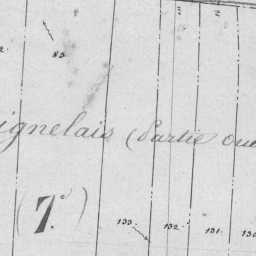 85
ignelais (Partie oue
(7.e)
133. 132. 131. 130